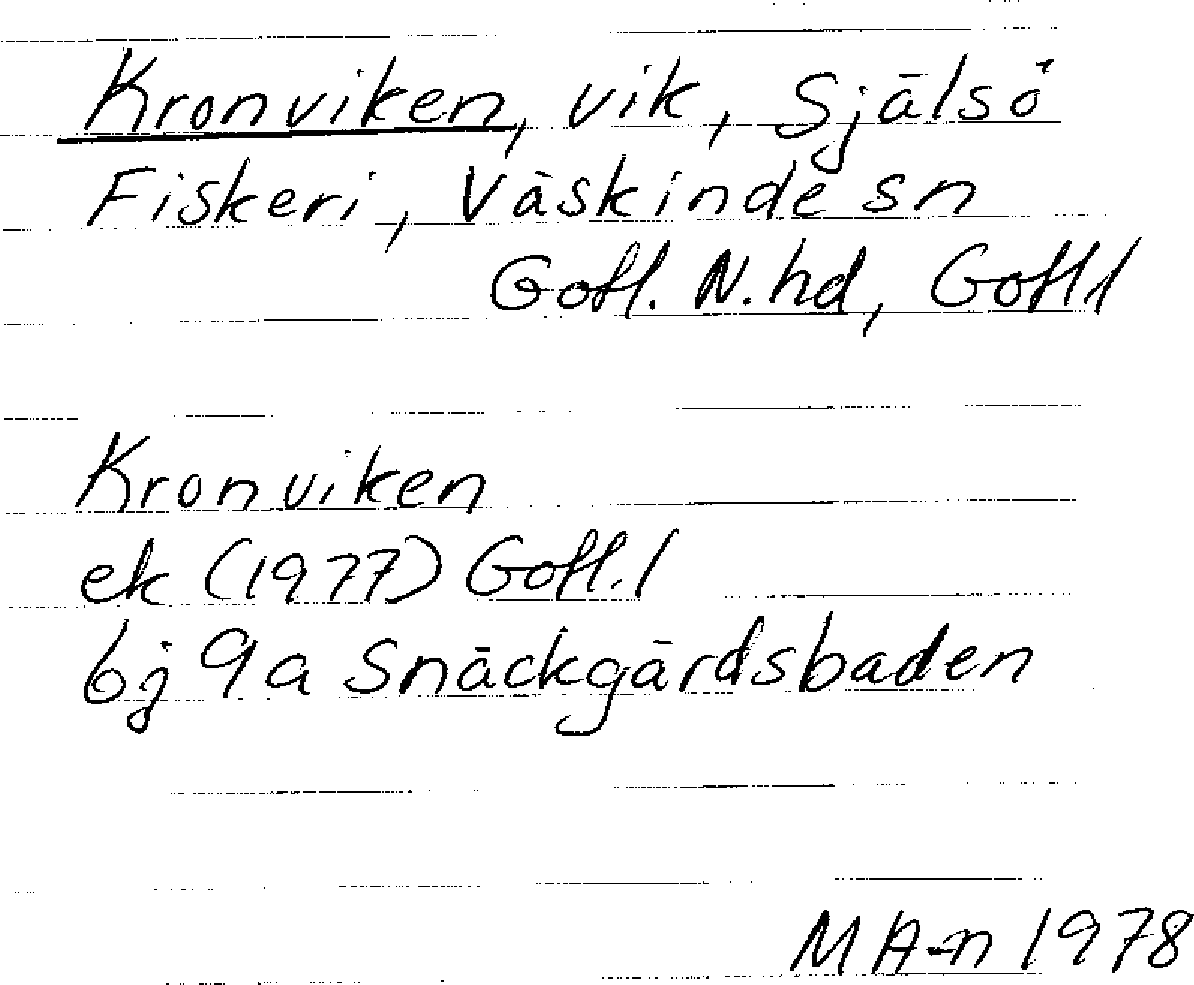 Kronviken, vik, Själsö
Fiskeri, Väskinde sn
Gotl. N. hd, Gotl. l
Kronviken
ek (1977) Gotl. l
bj 9a Snäckgärdsbaden
M A-n 1978